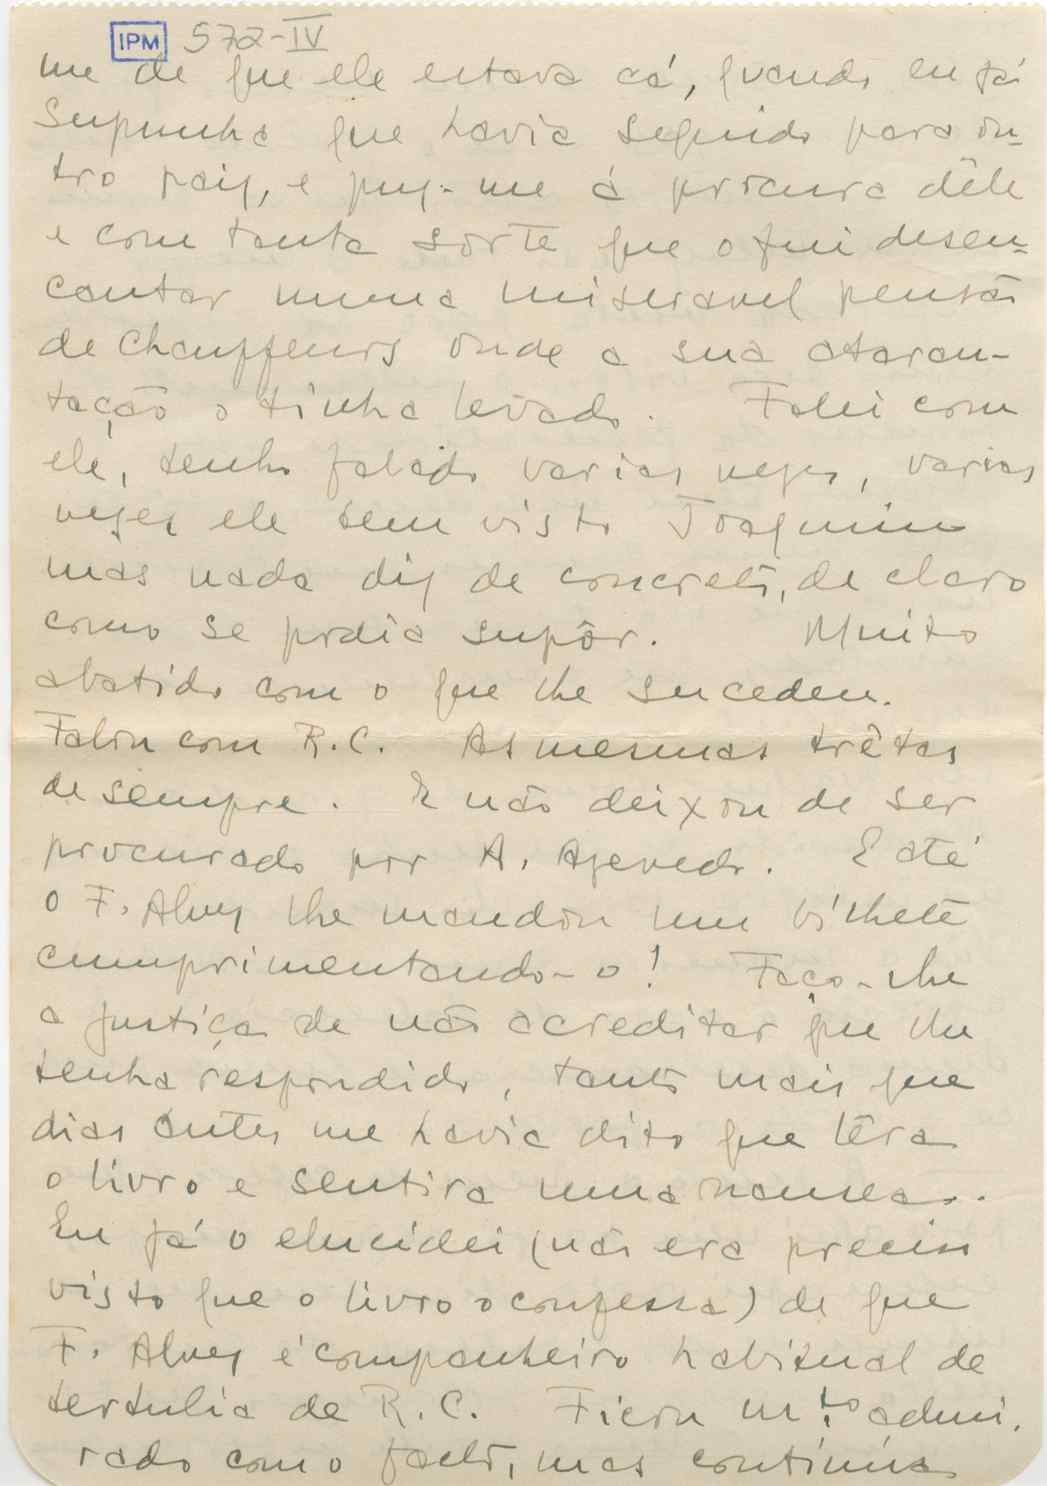 IPM 572-IV
me de que ele estava cá, quando eu já
supunha que havia seguido para ou=
tro paiz, e puz-me á procura dêle
e com tanta sorte que o fui desen=
cantar numa miseravel pensão
de chauffeurs onde a sua ataran-
tação o tinha levado. Falei com
ele, tenho falado varias vezes, varias
vezes ele tem visto Joaquim
mas nada diz de concreto, de claro
como se podia supôr. Muito
abatido com o que lhe sucedeu.
Falou com R.C. As mesmas trêtas
de sempre. E não deixou de ser
procurado por A. Azevedo. E até
o F. Alves lhe mandou um bilhete
cumprimentando-o! Faço-lhe
a justiça de não acreditar que lhe
tenha respondido, tanto mais que
dias antes me havia dito que lêra
o livro e sentira uma nausea..
Eu já o elucidei (não era preciso
visto que o livro o confessa) de que
F. Alves é companheiro habitual de
tertulia de R.C. Ficou m.to admi.
rado com o facto, mas continúa